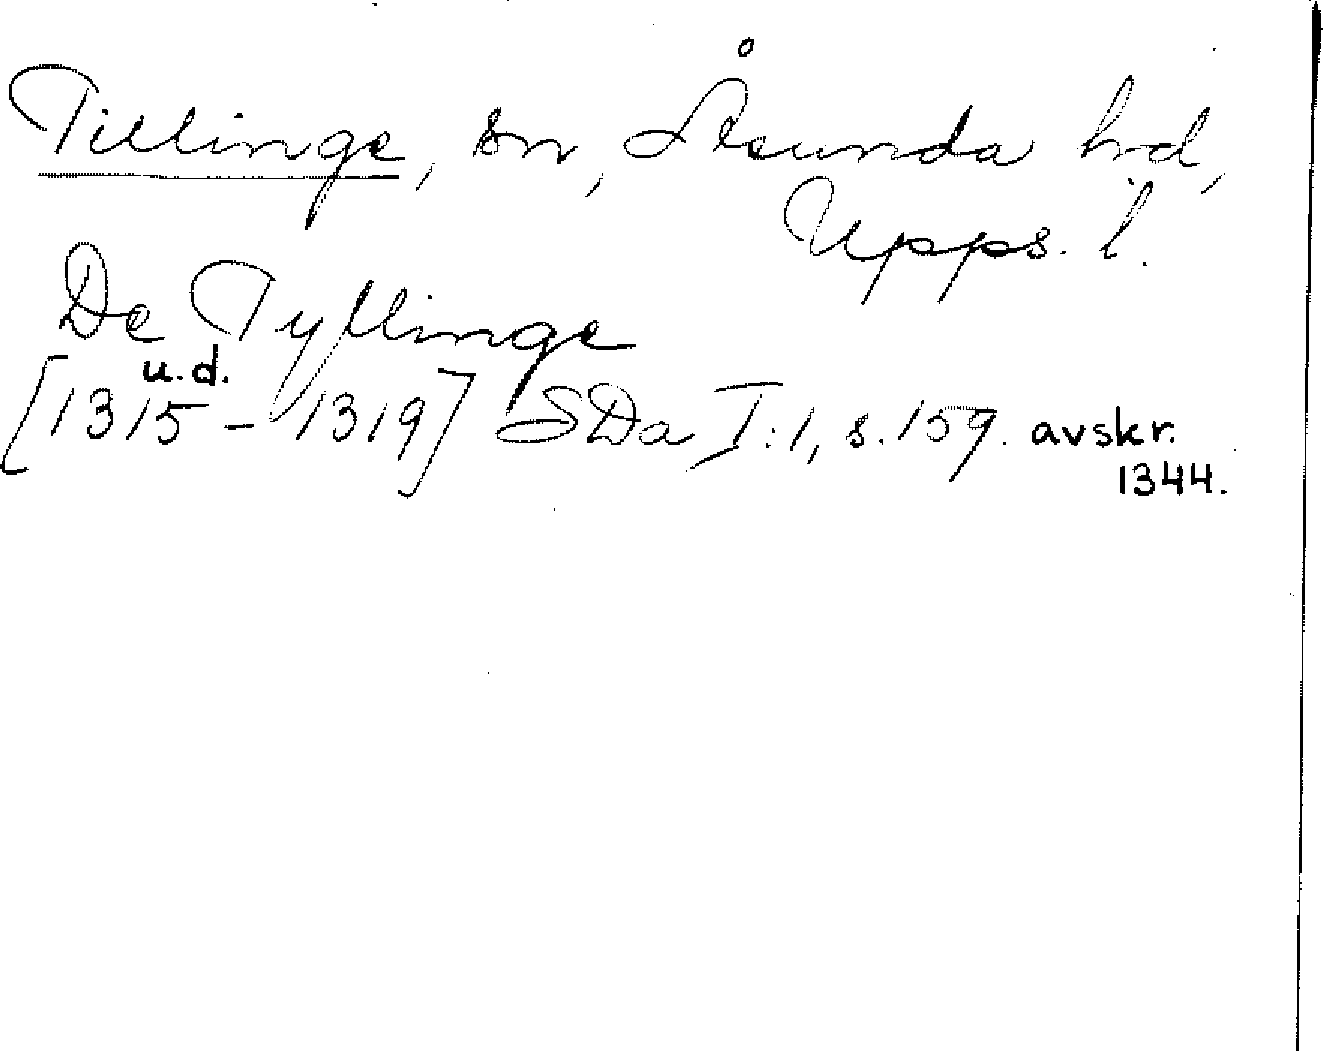 Tillinge, sn, Åsunda hd,
Upps. l.
De Tyflinge
u.d.
[1315 - 1319] SDa I:1, s. 159. avskr.
1344.